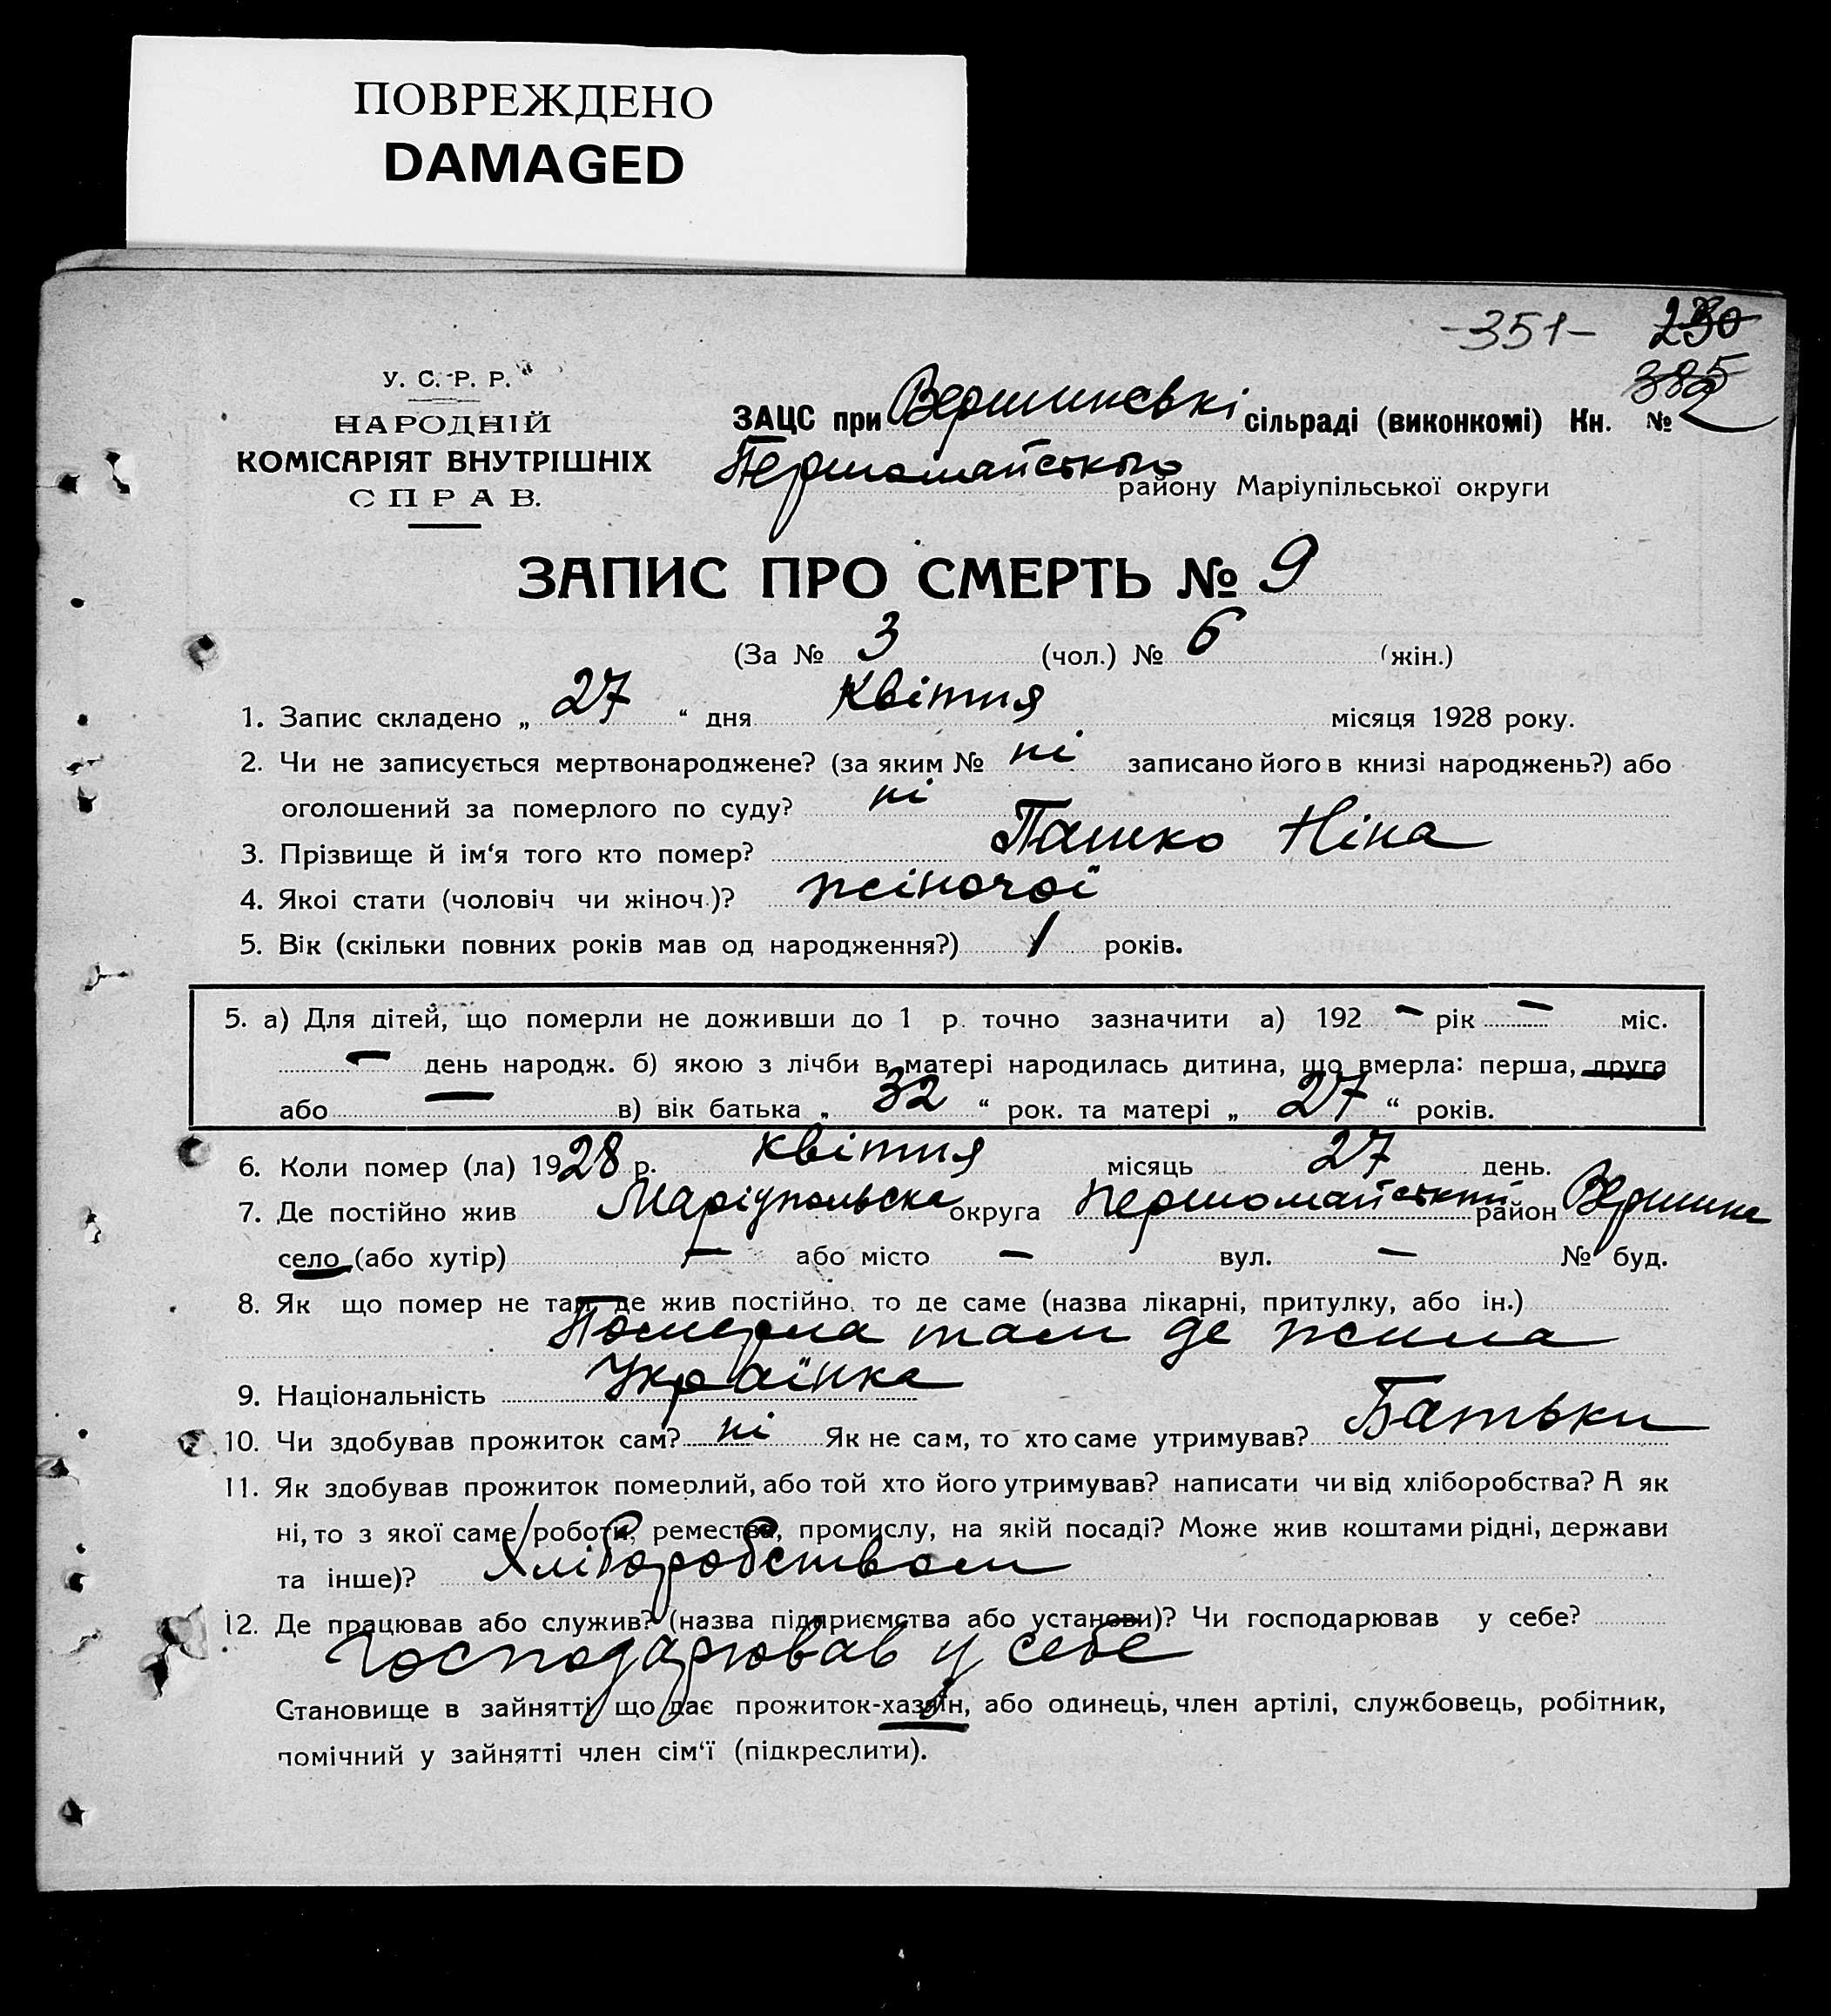 ПОВРЕЖДЕНО
DAMAGED
-351- 230
385
У. С. Р. Р.
НАРОДНІЙ
КОМІСАРІЯТ ВНУТРІШНІХ
СПРАВ.
ЗАЦС при Вершинські сільраді (виконкомі) Кн. №
Першомайського району Маріупільської округи
ЗАПИС ПРО СМЕРТЬ № 9
(За № 3 (чол.) № 6 (жін.)
1. Запис складено „ 27 “ дня Квітня місяця 1928 року.
2. Чи не записується мертвонароджене? (за яким № ні записано його в книзі народжень?) або
оголошений за померлого по суду? ні
3. Прізвище й ім‘я того кто помер? Пашко Ніна
4. Якої стати (чоловіч чи жіноч.)? жіночої
5. Вік (скільки повних років мав од народження?) 1 років.
5. а) Для дітей, що померли не доживши до 1 р. точно зазначити а) 192 – рік – міс.
– день народж. б) якою з лічби в матері народилась дитина, що вмерла: перша, друга
або – в) вік батька „ 32 “ рок. та матері „ 27 “ років.
6. Коли помер (ла) 1928 р. квітня місяць 27 день.
7. Де постійно жив Маріупольська округа Першомайський район Вершина
село (або хутір) – або місто – вул. – № буд.
8. Як що помер не там, де жив постійно, то де саме (назва лікарні, притулку, або ін.)
Померла там де жила
9. Національність Українка
10. Чи здобував прожиток сам? ні Як не сам, то хто саме утримував? Батьки
11. Як здобував прожиток померлий, або той хто його утримував? написати чи від хліборобства? А як
ні, то з якої саме роботи, ремества, промислу, на якій посаді? Може жив коштами рідні, держави
та інше)? Хліборобством
12. Де працював або служив? (назва підприємства або установи)? Чи господарював у себе?
Господарював у себе
Становище в зайнятті що дає прожиток-хазяїн, або одинець, член артілі, службовець, робітник,
помічний у зайнятті член сім‘ї (підкреслити).